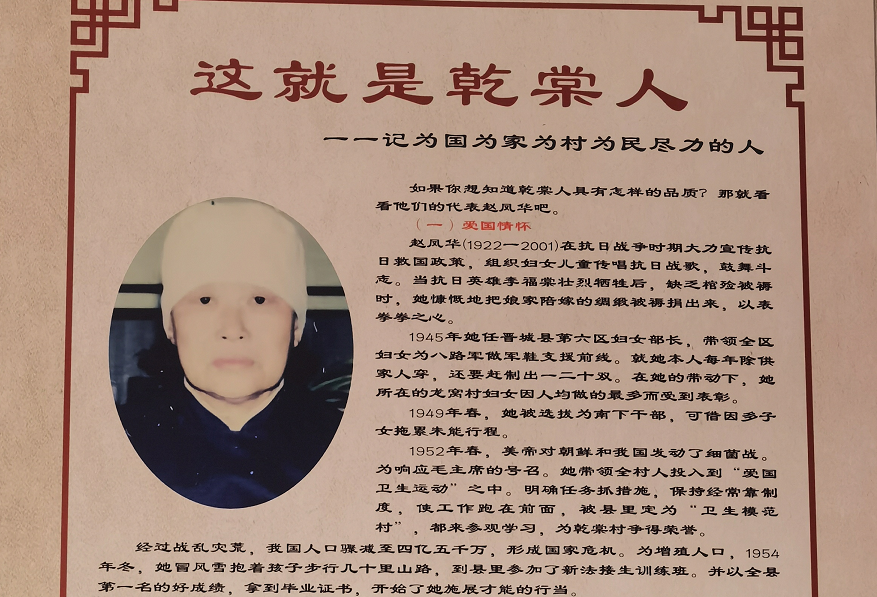 这就是乾棠人
一一记为国为家为村为民尽力的人
如果你想知道乾棠人具有怎样的品质？那就看
看他们的代表赵凤华吧。
（一）爱国情怀
赵凤华(1922一2001)在抗日战争时期大力宣传抗
日救国政策，组织妇女儿童传唱抗日战歌，鼓舞斗
志。当抗日英雄李福棠壮烈牺牲后，缺乏棺殓被褥
时，她慷慨地把娘家陪嫁的绸缎被褥捐出来，以表
拳拳之心。
1945年她任晋城县第六区妇女部长，带领全区
妇女为八路军做军鞋支援前线。就她本人每年除供
家人穿，还要赶制出一二十双。在她的带动下，她
所在的龙窝村妇女因人均做的最多而受到表彰。
1949年春，她被选拔为南下干部，可惜因多子
女拖累未能行程。
1952年春，美帝对朝鲜和我国发动了细菌战。
为响应毛主席的号召。她带领全村人投入到“爱国
卫生运动”之中。明确任务抓措施，保持经常靠制
度，使工作跑在前面，被县里定为“卫生模范
村”，都来参观学习，为乾棠村争得荣誉。
经过战乱灾荒，我国人口骤减至四亿五千万，形成国家危机。为增殖人口，1954
年冬，她冒风雪抱着孩子步行几十里山路，到县里参加了新法接生训练班。并以全县
第一名的好成绩，拿到毕业证书，开始了她施展才能的行当。